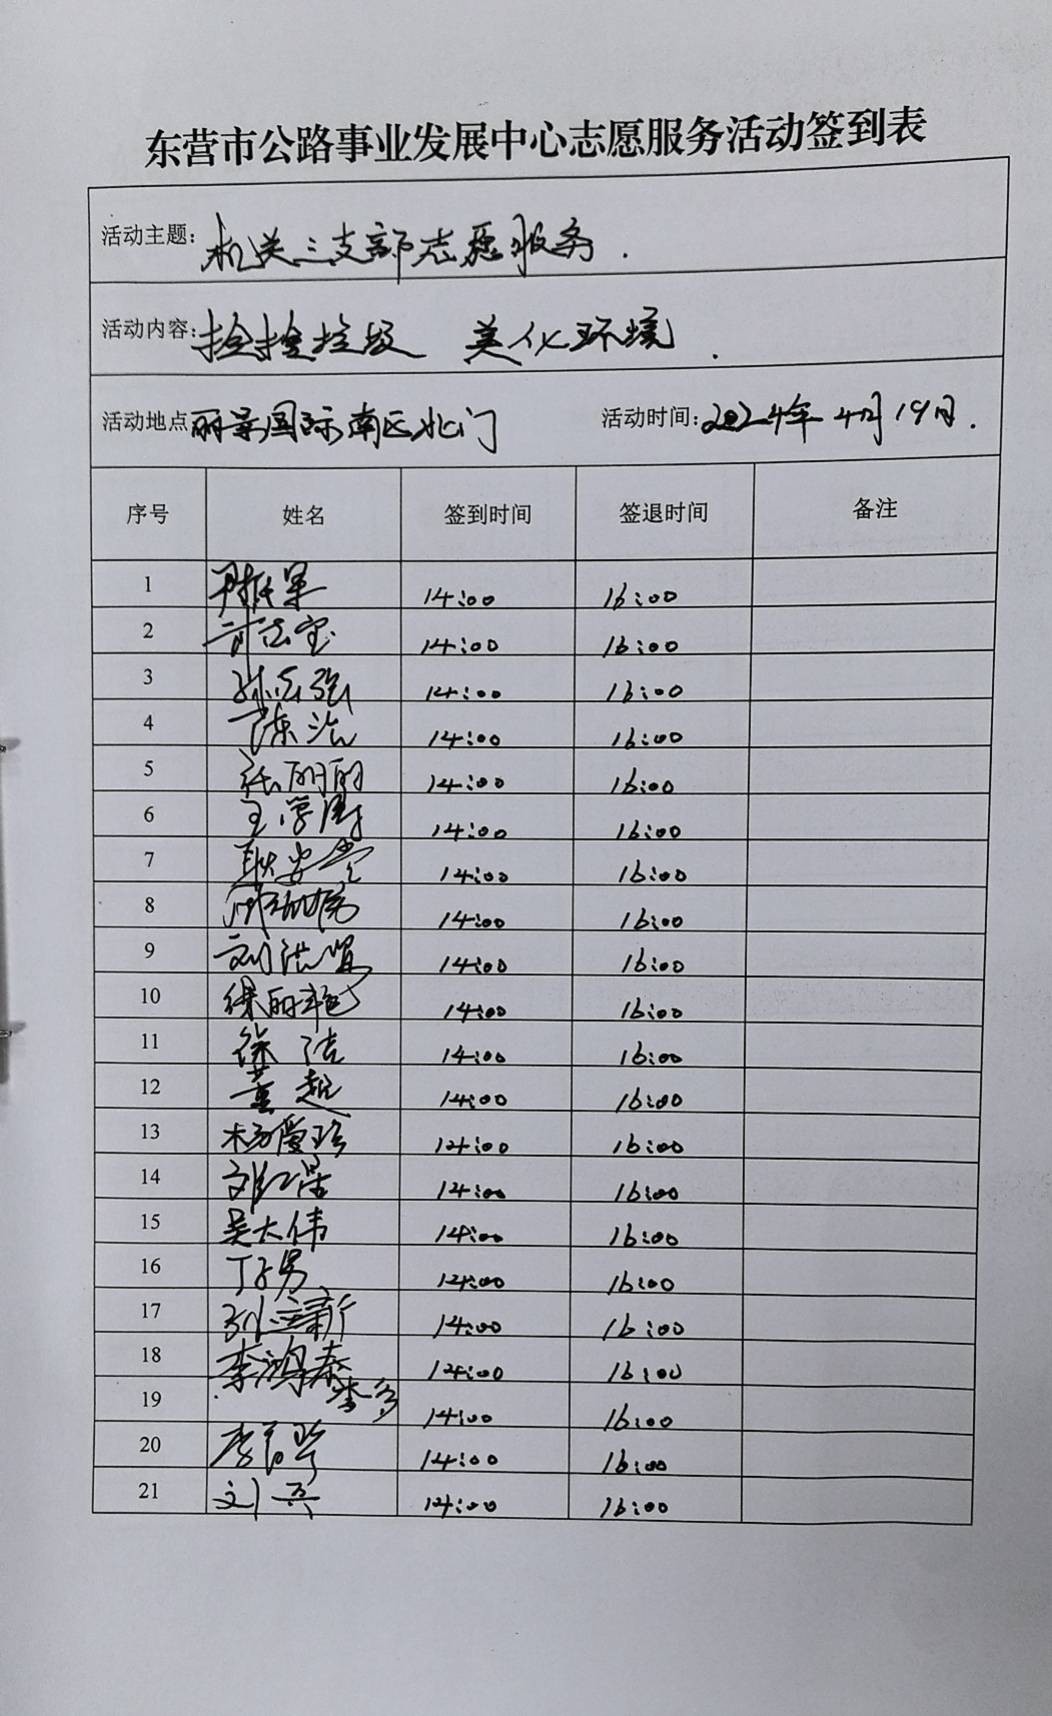 东营市公路事业发展中心志愿服务活动签到表
活动主题: 机关三支部志愿服务.
活动内容: 捡捡垃圾 美化环境.
活动地点 丽景国际南区北门 活动时间: 2024年4月19日.
序号 姓名 签到时间 签退时间 备注
1 14:00 16:00
2 14:00 16:00
3 14:00 16:00
4 陈浩 14:00 16:00
5 张丽丽 14:00 16:00
6 14:00 16:00
7 耿安党 14:00 16:00
8 14:00 16:00
9 14:00 16:00
10 徐丽艳 14:00 16:00
11 徐洁 14:00 16:00
12 董超 14:00 16:00
13 杨爱珍 14:00 16:00
14 14:00 16:00
15 吴大伟 14:00 16:00
16 丁子男 14:00 16:00
17 14:00 16:00
18 李鸿泰 14:00 16:00
19 14:00 16:00
20 14:00 16:00
21 刘兵 14:00 16:00